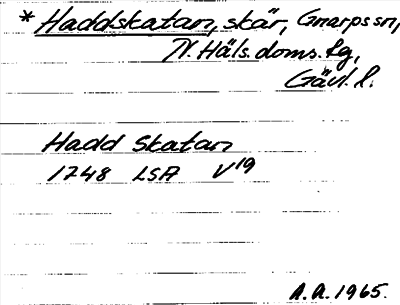 * Haddskatan, skär, Gnarps sn,
N. Häls. doms. lg,
Gävl. l.
Hadd skatan
1748 LSA V19
A.A. 1965.